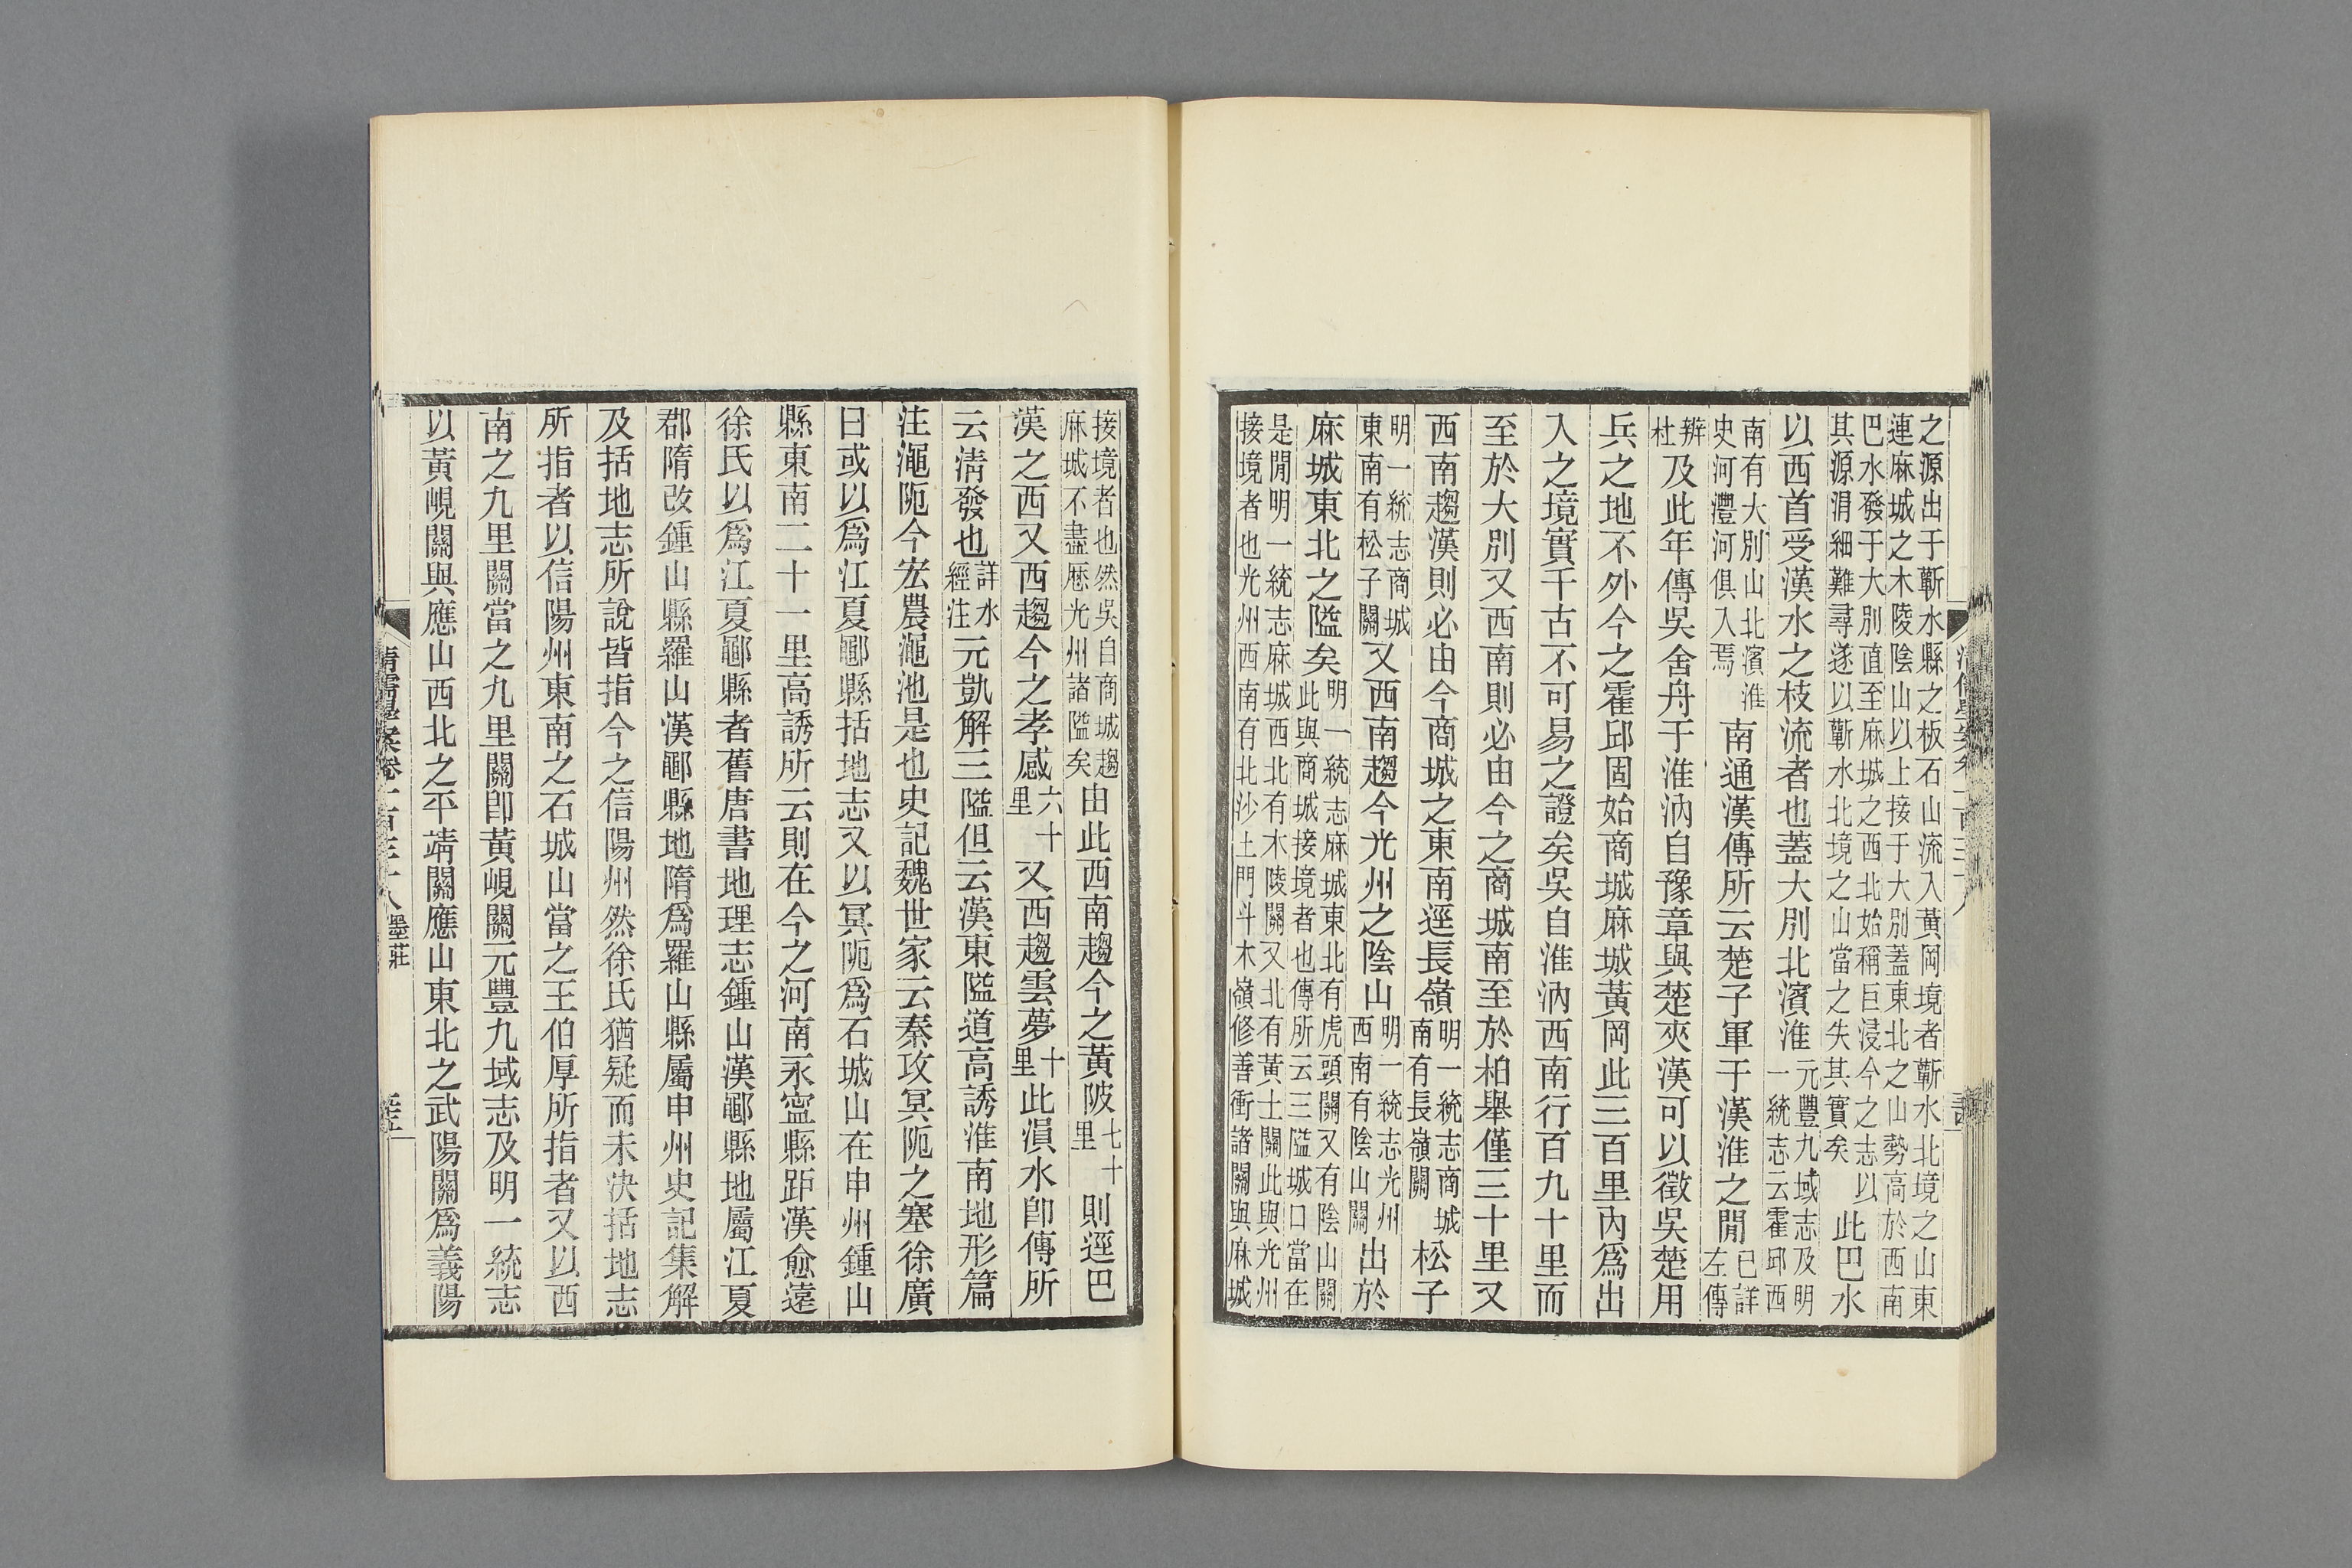 之源出于蘄水縣之板石山流入黃岡境者蘄水北境之山東
連麻城之木陵陰山以上接于大別蓋東北之山勢高於西南
巴水發于大別直至麻城之西北始稱巨浸今之志以
其源涓細難尋遂以蘄水北境之山當之失其實矣
此巴水
以西首受漢水之枝流者也蓋大別北濱淮
元豐九域志及明
一統志云霍邱西
南有大別山北濱淮
史河灃河俱入焉
南通漢傳所云楚子軍于漢淮之閒
已詳
左傳
辨
杜
及此年傳吳舍舟于淮汭自豫章與楚夾漢可以徵吳楚用
兵之地不外今之霍邱固始商城麻城黃岡此三百里內爲出
入之境實千古不可易之證矣吳自淮汭西南行百九十里而
至於大別又西南則必由今之商城南至於柏舉僅三十里又
西南趨漢則必由今商城之東南逕長嶺
明一統志商城
南有長嶺關
松子
明一統志商城
東南有松子關
又西南趨今光州之陰山
明一統志光州
西南有陰山關
出於
麻城東北之隘矣
明一統志麻城東北有虎頭關又有陰山關
此與商城接境者也傳所云三隘城口當在
是閒明一統志麻城西北有木陵關又北有黃土關此與光州
接境者也光州西南有北沙土門斗木嶺修善衝諸關與麻城
接境者也然吳自商城趨
麻城不盡歷光州諸隘矣
由此西南趨今之黃陂
七十
里
則逕巴
漢之西又西趨今之孝感
六十
里
又西趨雲夢
十
里
此溳水卽傳所
云清發也
詳水
經注
元凱解三隘但云漢東隘道高誘淮南地形篇
注澠阨今宏農澠池是也史記魏世家云秦攻冥阨之塞徐廣
曰或以爲江夏鄳縣括地志又以冥阨爲石城山在申州鍾山
縣東南二十一里高誘所云則在今之河南永寧縣距漢愈遠
徐氏以爲江夏鄳縣者舊唐書地理志鍾山漢鄳縣地屬江夏
郡隋改鍾山縣羅山漢鄳縣地隋爲羅山縣屬申州史記集解
及括地志所說皆指今之信陽州然徐氏猶疑而未決括地志
所指者以信陽州東南之石城山當之王伯厚所指者又以西
南之九里關當之九里關卽黃峴關元豐九域志及明一統志
以黃峴關與應山西北之平靖關應山東北之武陽關爲義陽
墨莊